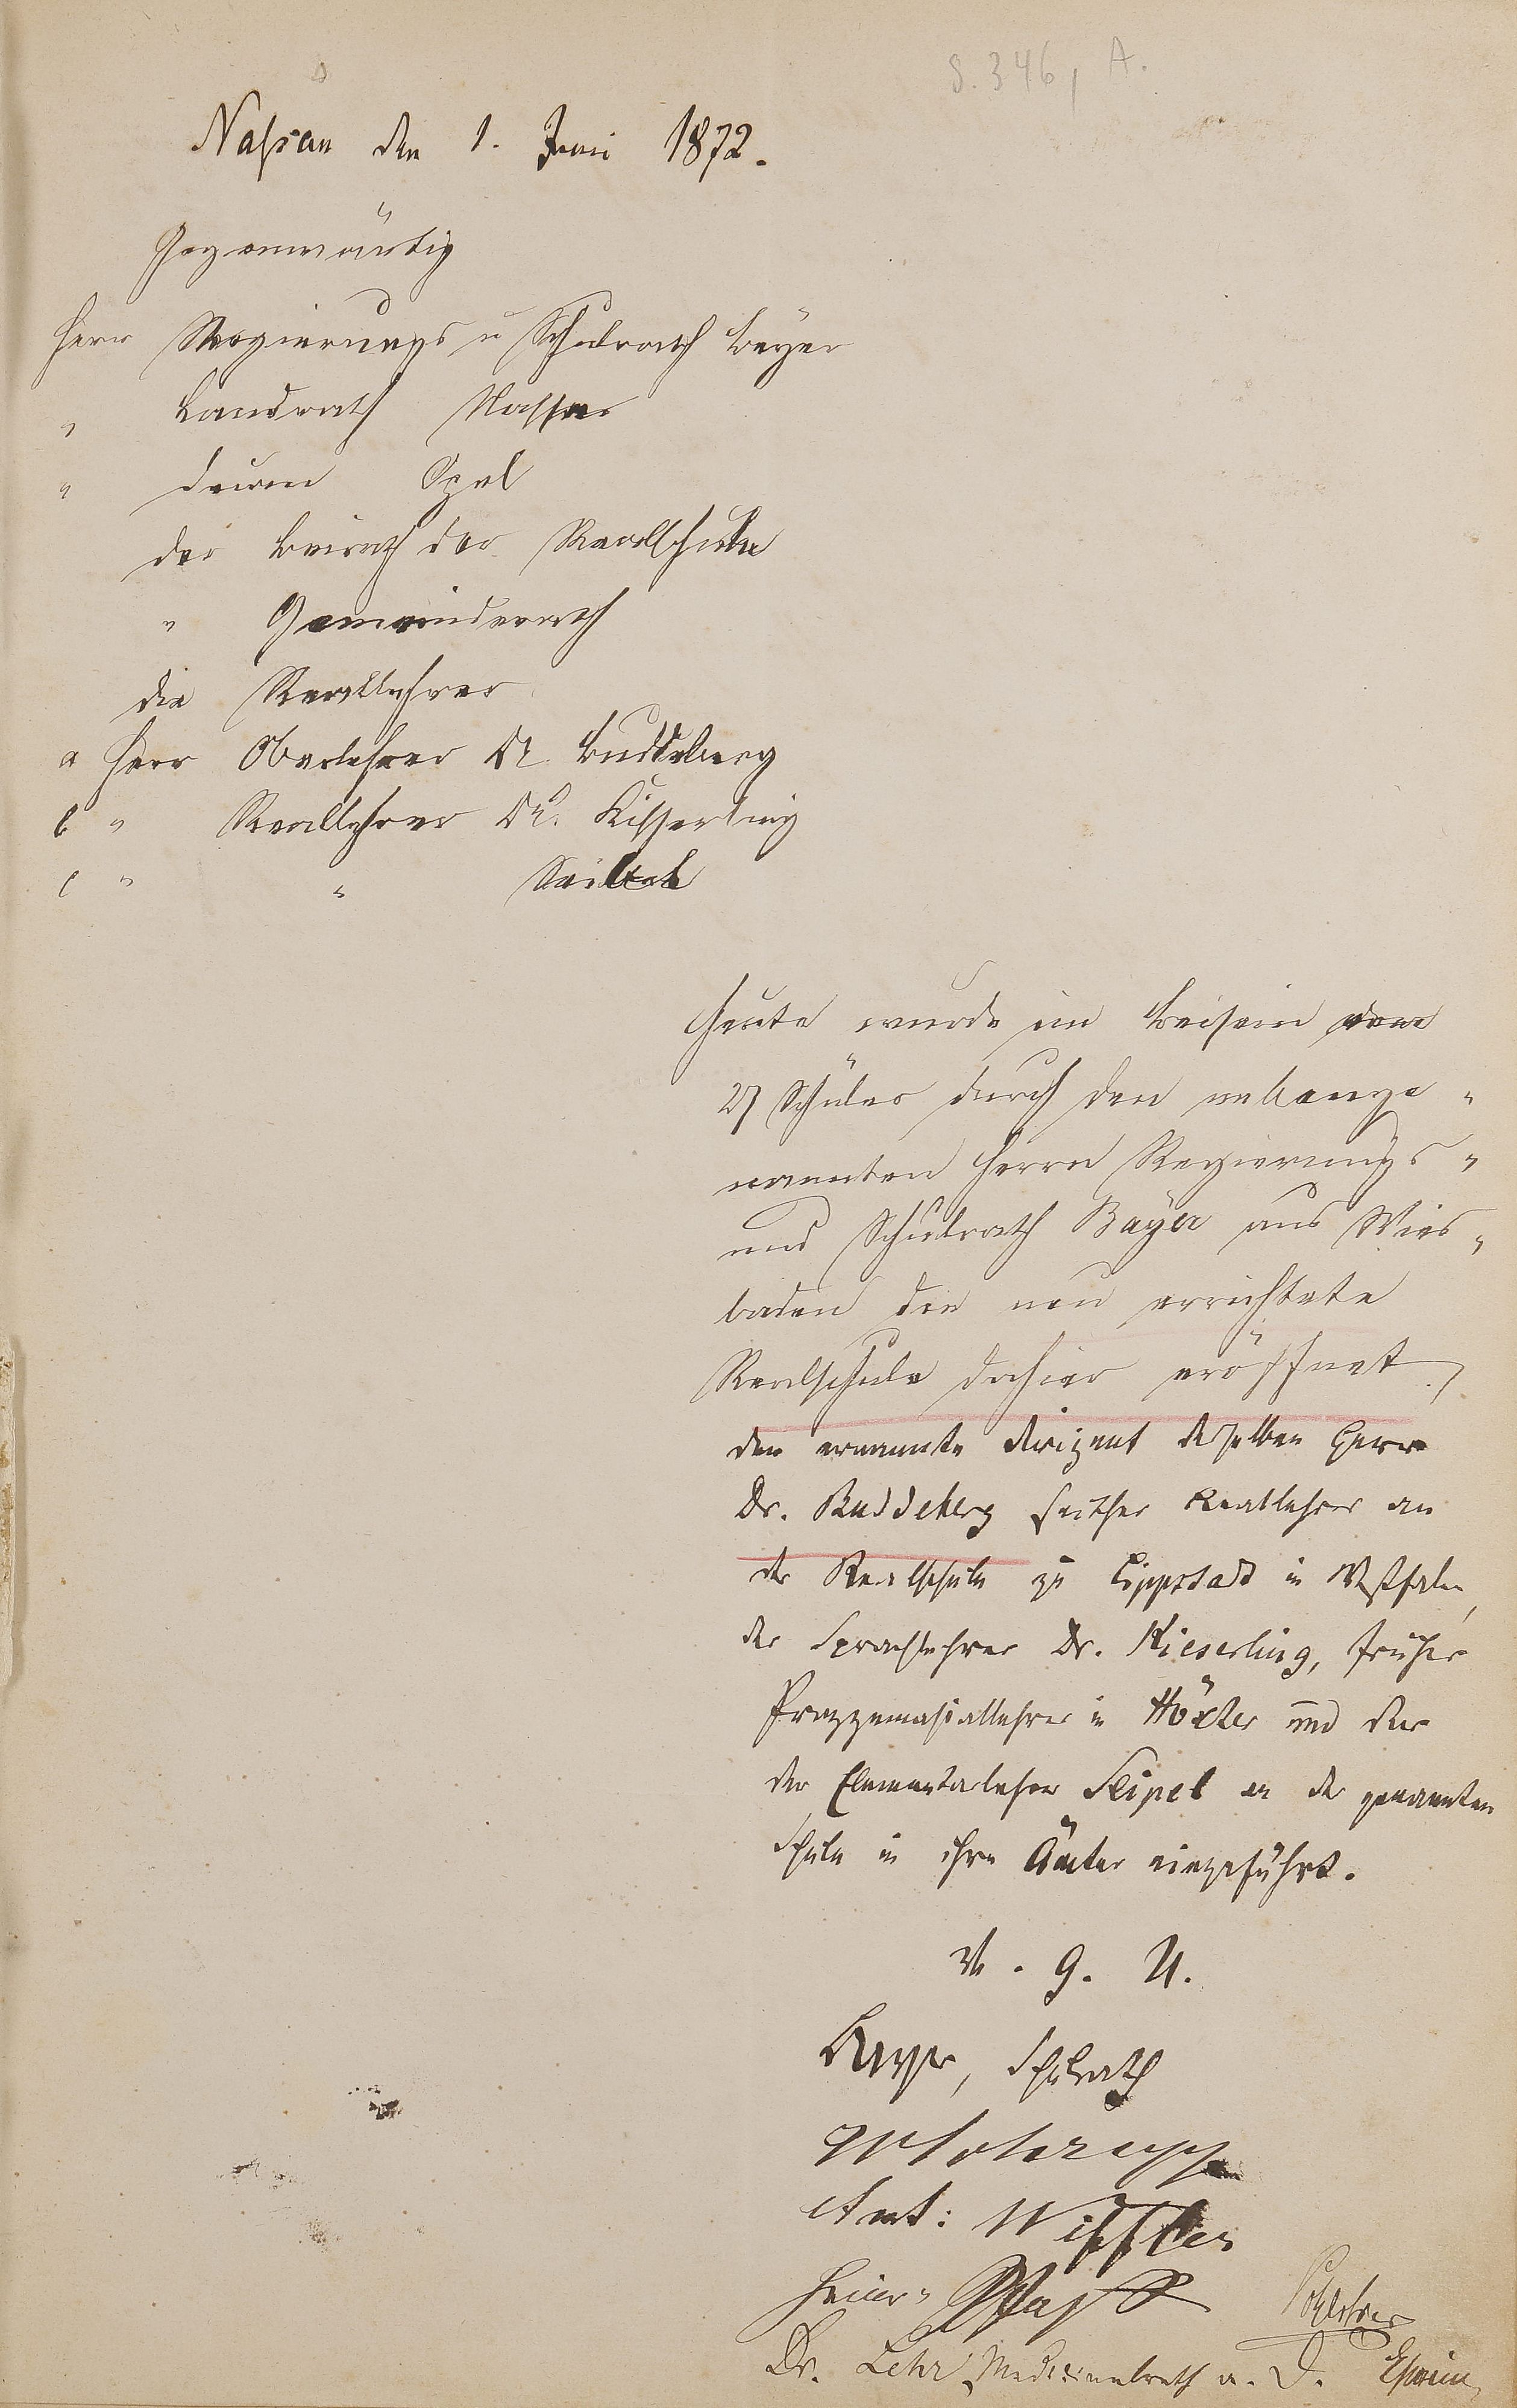 S. 346, A.
Nassau den 1. Juni 1872.
Gegenwärtig
Herr Regierungs u Schulrath Bayer
" Landrath Nasse
" Decan
der Beirath der Realschule
" Gemeinderath
die Reallehrer
a Herr Oberlehrer Dr. Buddeberg
b " Reallehrer Dr. Kisserling
c " "
Heute wurde im Beisein von
27 Schüler durch den nebenge-
nannten Herrn Regierungs-
und Schulrath Bayer aus Wies-
baden die neu errichtete
Realschule dahier eröffnet,
der ernannte Dirigent derselben Herr
Dr. Buddeberg seither Reallehrer an
der Realschule zu Lippstadt in Westfalen,
der Sprachlehrer Dr. Kieserling, früher
Progymnasiallehrer in Höxter und der
der Elementarlehrer Seipel an der genannten
Schule in ihre Ämter eingeführt.
V. g. U.
Bayer, Schulrath
Ant:
Heinr.
Dr. Lehr, Medicinalrath a. D.